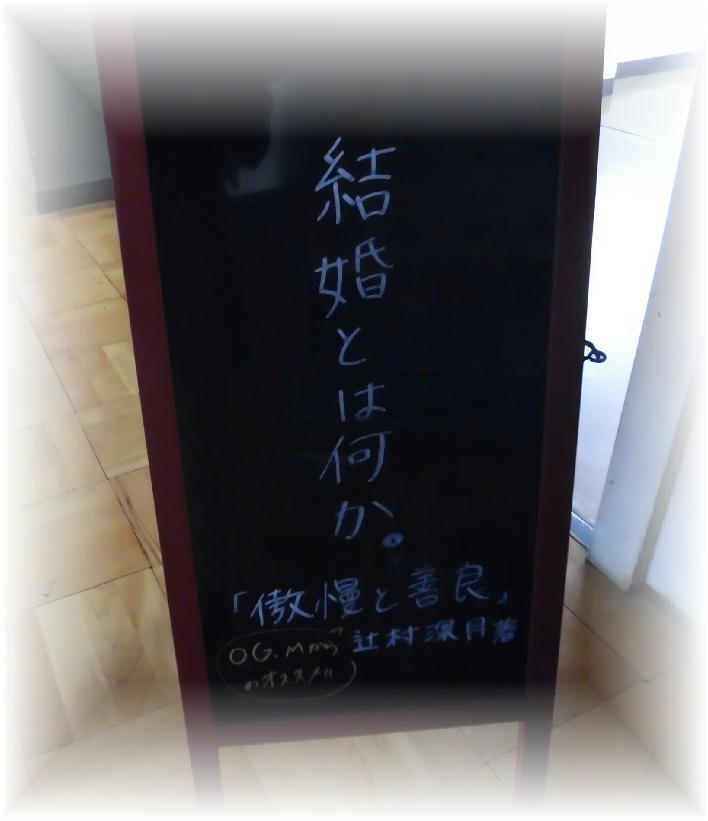 結婚とは何か。
「傲慢と善良」
辻村深月著
OG.Mから
のオススメ!!